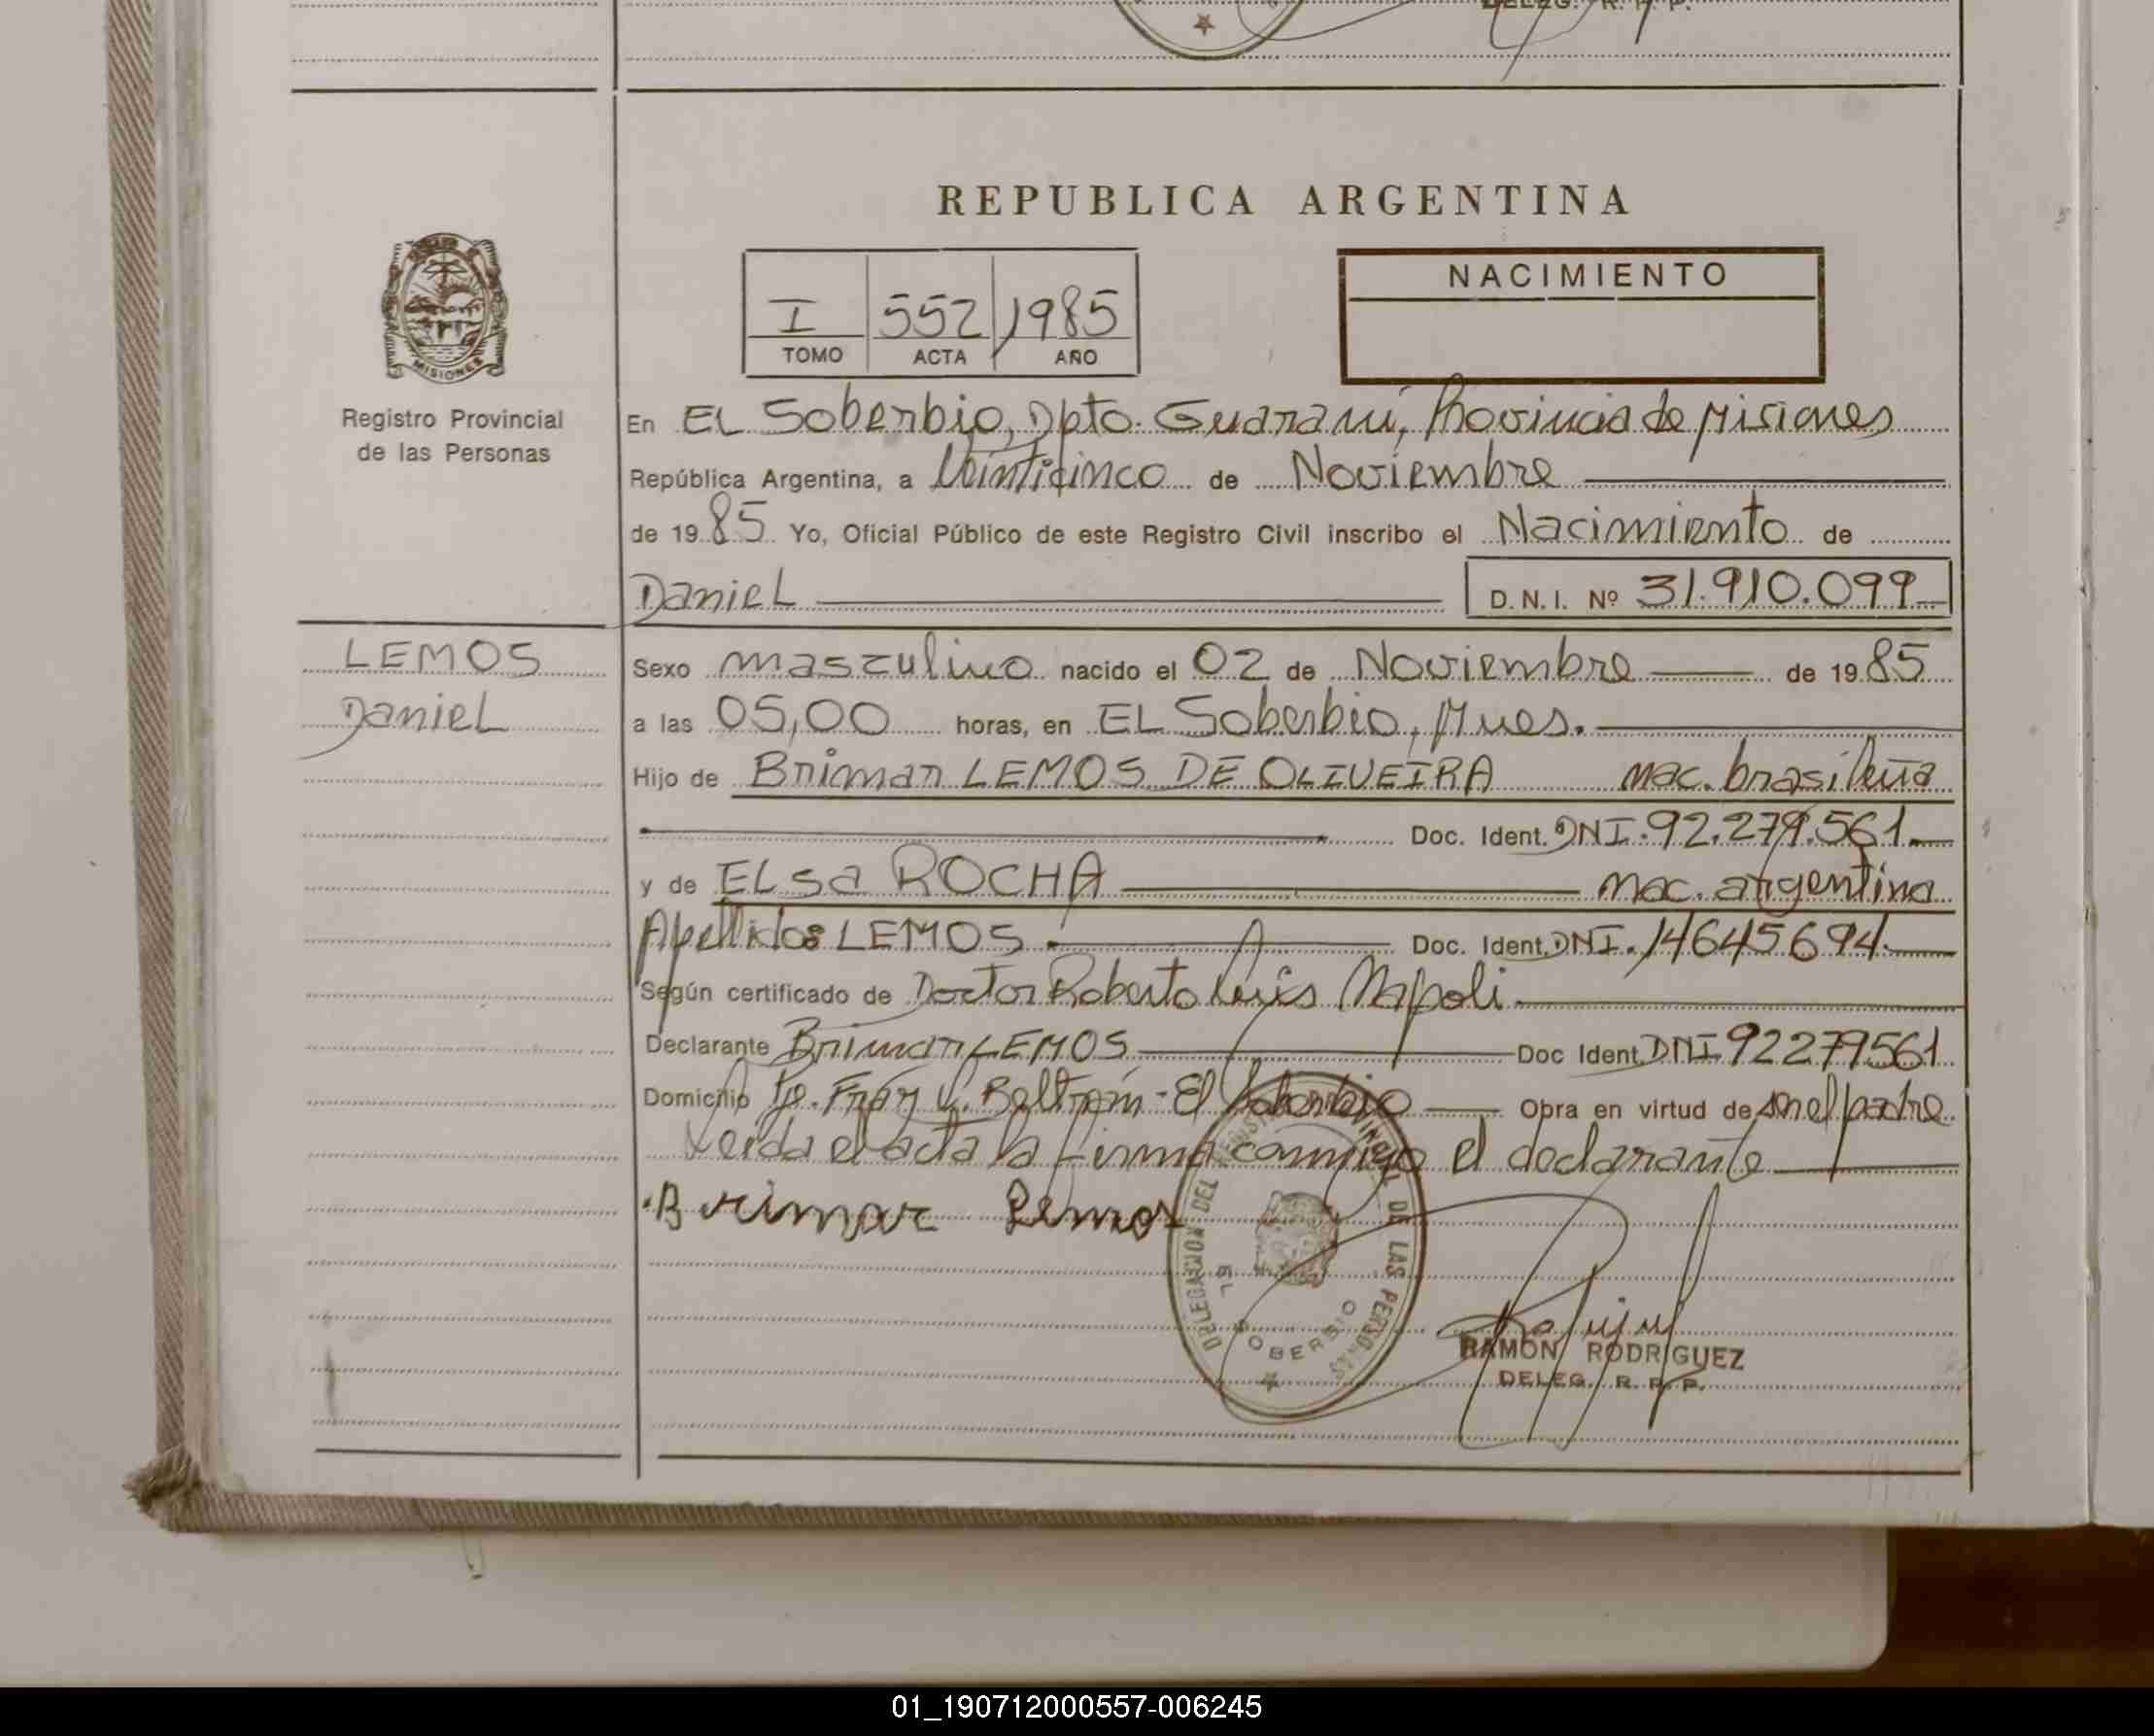 DELEG. R. P. P.
REPUBLICA ARGENTINA
NACIMIENTO
I 552 1985
TOMO ACTA AÑO
MISIONES
Registro Provincial
de las Personas
En EL Soberbio, Dpto. Guaraní, Provincia de Misiones
República Argentina, a Veinticinco de Noviembre
de 1985 Yo, Oficial Público de este Registro Civil inscribo el Nacimiento de
Daniel D.N.I. Nº 31.910.099
LEMOS
Daniel
Sexo masculino nacido el 02 de Noviembre de 1985
a las 05,00 horas, en EL Soberbio, Mnes.
Hijo de Brimar LEMOS DE OLIVEIRA nac. brasileña
Doc. Ident. DNI. 92.279.561
y de ELsa ROCHA nac. argentina
Apellidos LEMOS Doc. Ident. DNI. 14645694
Según certificado de Doctor Roberto Luis Napoli
Declarante Brimar LEMOS Doc Ident. DNI 92279561
Domicilio Fray L. Beltrám - El Soberbio Obra en virtud de ser el padre
Leída el acta la firma conmigo el declarante
Brimar Lemos
DELEGACION DEL REGISTRO PROVINCIAL DE LAS PERSONAS
EL SOBERBIO
RAMON RODRIGUEZ
DELEG. R. P. P.
01_190712000557-006245